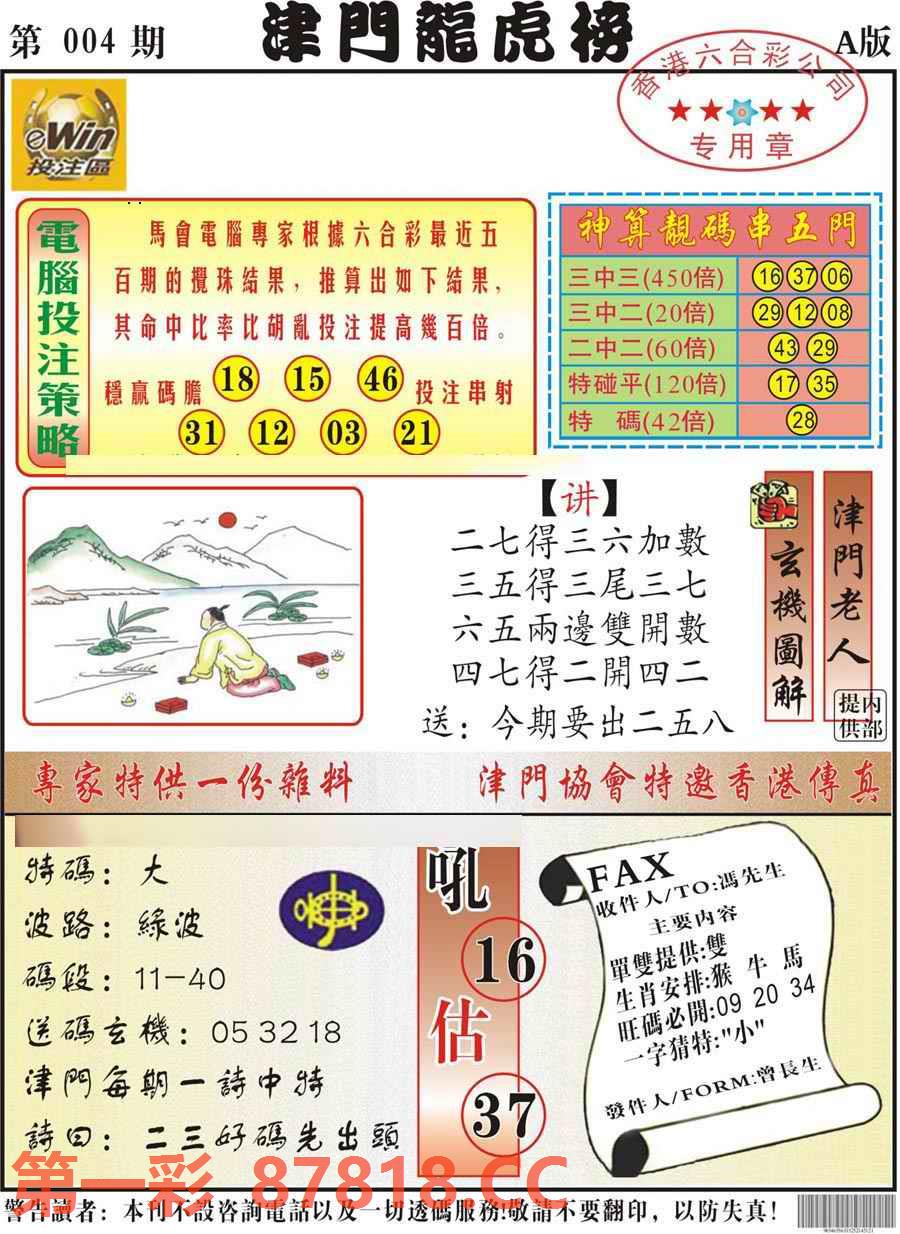 第 004 期
津門龍虎榜
A版
香港六合彩公司
专用章
eWin
投注區
電腦投注策略
馬會電腦專家根據六合彩最近五
百期的攪珠結果，推算出如下結果，
其命中比率比胡亂投注提高幾百倍。
穩贏碼膽 18 15 46 投注串射
31 12 03 21
神算靚碼串五門
三中三(450倍) 16 37 06
三中二(20倍) 29 12 08
二中二(60倍) 43 29
特碰平(120倍) 17 35
特 碼(42倍) 28
【讲】
二七得三六加數
三五得三尾三七
六五兩邊雙開數
四七得二開四二
送：今期要出二五八
玄機圖解
津門老人
提供
内部
專家特供一份雜料
津門協會特邀香港傳真
特碼：大
波路：綠波
碼段：11-40
送碼玄機：05 32 18
津門每期一詩中特
詩曰：二三好碼先出頭
吼
16
估
37
FAX
收件人/TO:馮先生
主要内容
單雙提供:雙
生肖安排:猴 牛 馬
旺碼必開:09 20 34
一字猜特:"小"
發件人/FORM:曾長生
第一彩 87818.CC
警告讀者：本刊不設咨詢電話以及一切透碼服務!敬請不要翻印，以防失真!